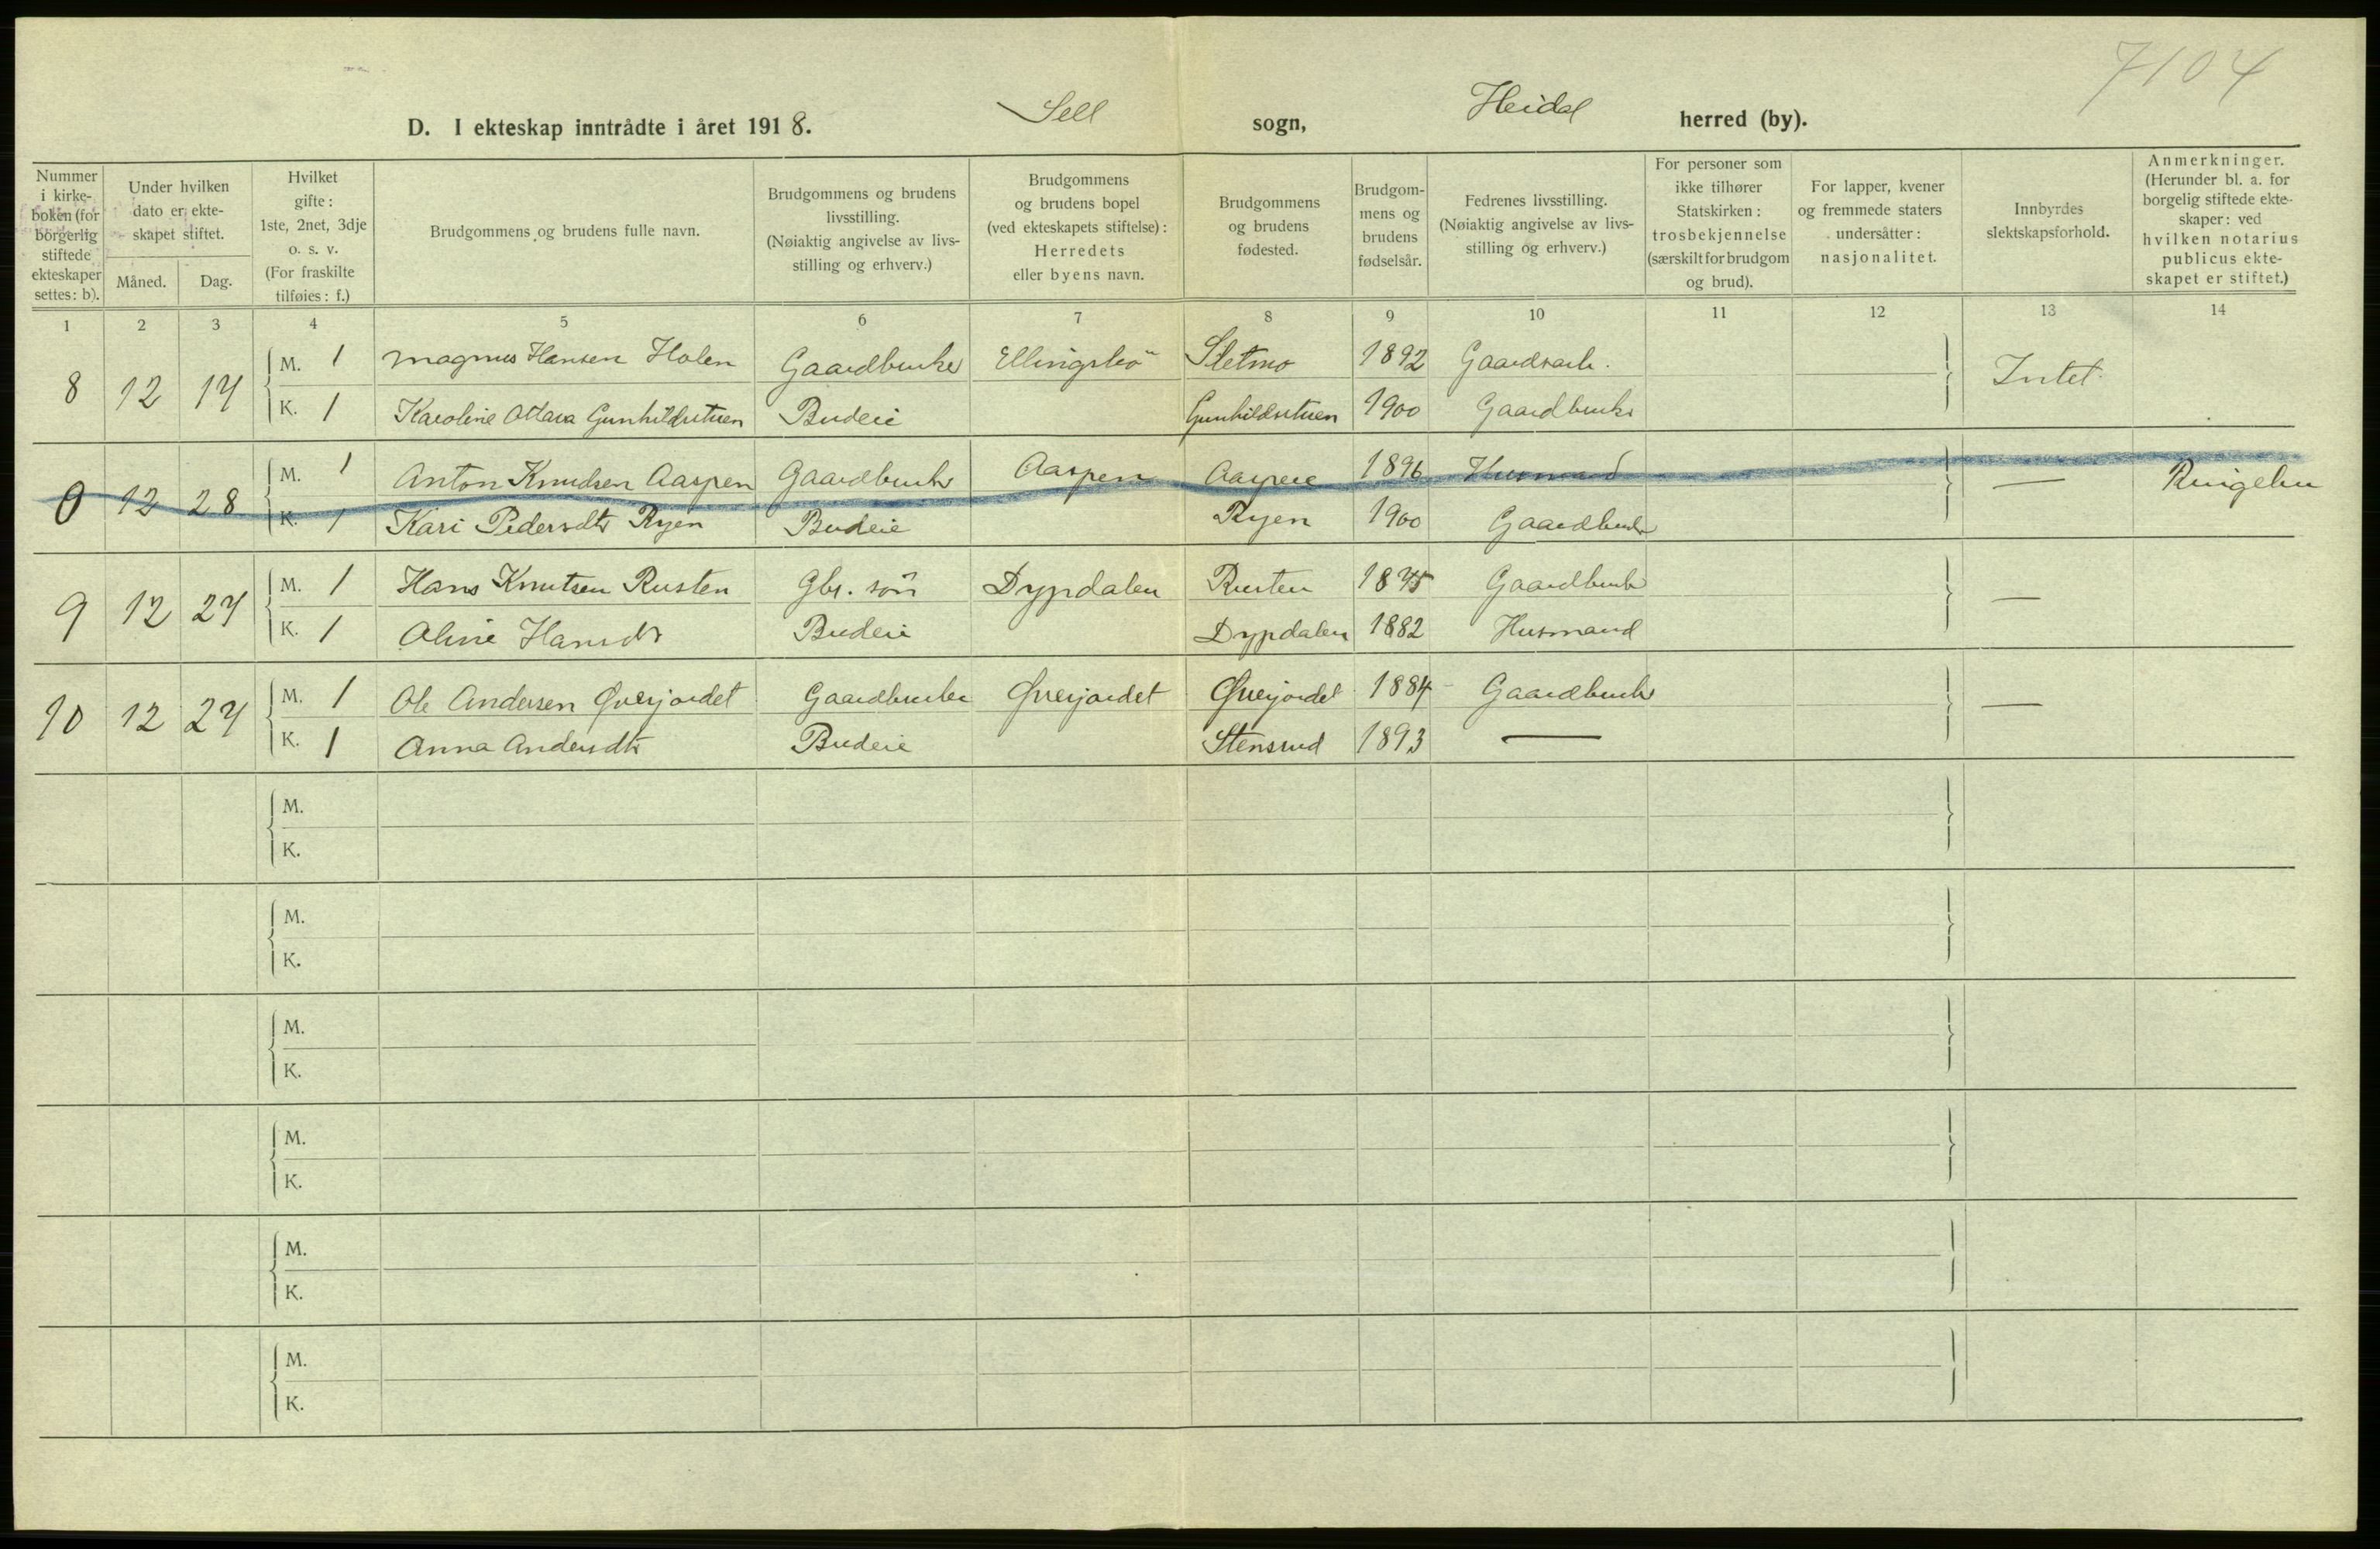 7104
D. I ekteskap inntrådte i året 1918. Sell sogn, Heidal herred (by).
Nummer i kirkeboken (for borgerlig stiftede ekteskaper settes: b).
Under hvilken dato er ekteskapet stiftet.
Måned. Dag.
Hvilket gifte: 1ste, 2net, 3dje o. s. v. (For fraskilte tilføies: f.)
Brudgommens og brudens fulle navn.
Brudgommens og brudens livsstilling. (Nøiaktig angivelse av livsstilling og erhverv.)
Brudgommens og brudens bopel (ved ekteskapets stiftelse): Herredets eller byens navn.
Brudgommens og brudens fødested.
Brudgommens og brudens fødselsår.
Fedrenes livsstilling. (Nøiaktig angivelse av livsstilling og erhverv.)
For personer som ikke tilhører Statskirken: trosbekjennelse (særskilt for brudgom og brud).
For lapper, kvener og fremmede staters undersåtter: nasjonalitet.
Innbyrdes slektskapsforhold.
Anmerkninger. (Herunder bl. a. for borgelig stiftede ekteskaper: ved hvilken notarius publicus ekteskapet er stiftet.)
1 2 3 4 5 6 7 8 9 10 11 12 13 14
8 12 14 M. 1 Magnus Hansen Holen Gaardbruker Ellingsbö Sletmo 1892 Gaardsarb. Intet
K. 1 Karoline Ottava Gunhildstuen Budeie Gunhildstuen 1900 Gaardbruker
0 12 28 M. 1 Anton Knudsen Aaspen Gaardbruker Aaspen Aaspen 1896 Husmand — Ringebu
K. 1 Kari Pedersdtr Ryen Budeie Ryen 1900 Gaardbruker
9 12 27 M. 1 Hans Knutsen Rusten Gbr. sön Dypdalen Rusten 1875 Gaardbruker —
K. 1 Oline Hansdtr Budeie Dypdalen 1882 Husmand
10 12 27 M. 1 Ole Andersen Øverjordet Gaardbruker Øverjordet Øverjordet 1884 Gaardbruker —
K. 1 Anna Andersdtr Budeie Stensrud 1893 —
M.
K.
M.
K.
M.
K.
M.
K.
M.
K.
M.
K.